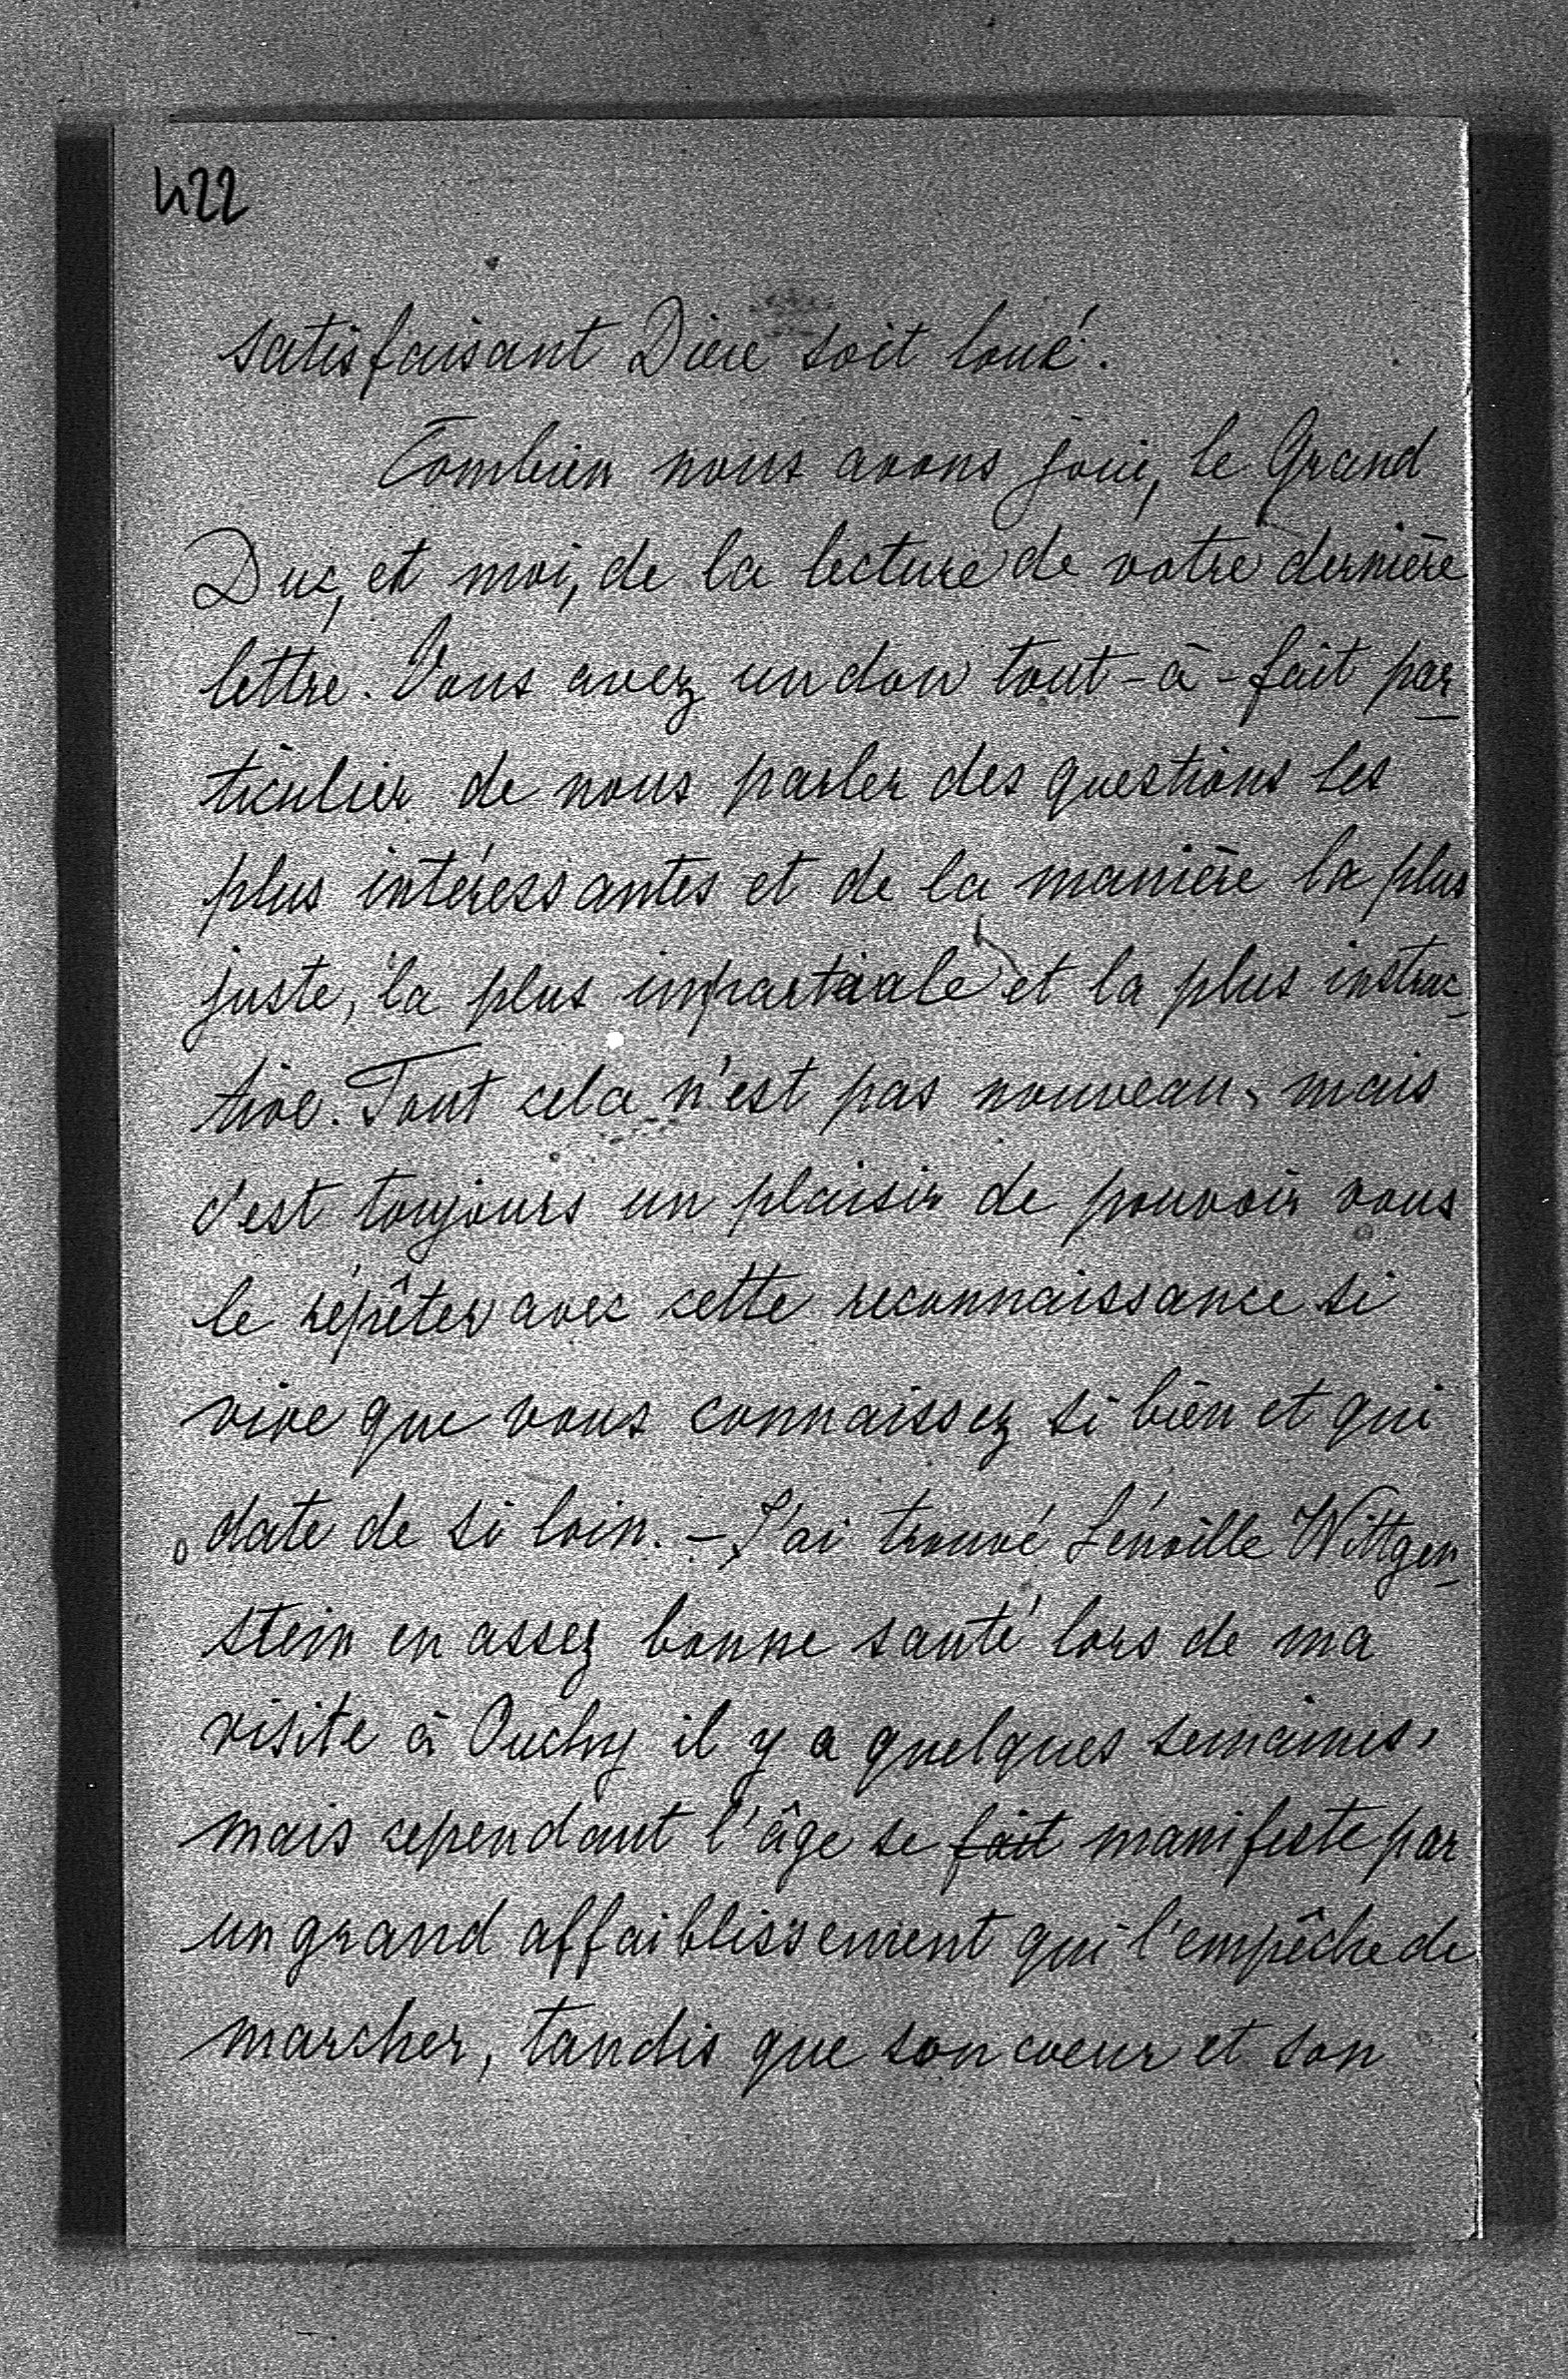 422
satisfaisant Dieu soit loué.
Combien nous avons joui, le Grand
Duc, et moi, de la lecture de votre dernière
lettre. Vous avez un don tout-à-fait par-
ticulier de nous parler des questions les
plus intéressantes et de la manière la plus
juste, la plus impartiale et la plus instruc-
tive. Tout cela n'est pas nouveau, mais
c'est toujours un plaisir de pouvoir vous
le répêter avec cette reconnaissance si
vive que vous connaissez si bien et qui
date de si loin. – J'ai trouvé Léonille Wittgen-
stein en assez bonne santé lors de ma
visite à Ouchy il y a quelques semaines,
mais cependant l'âge se fait manifeste par
un grand affaiblissement qui l'empêche de
marcher, tandis que son coeur et son